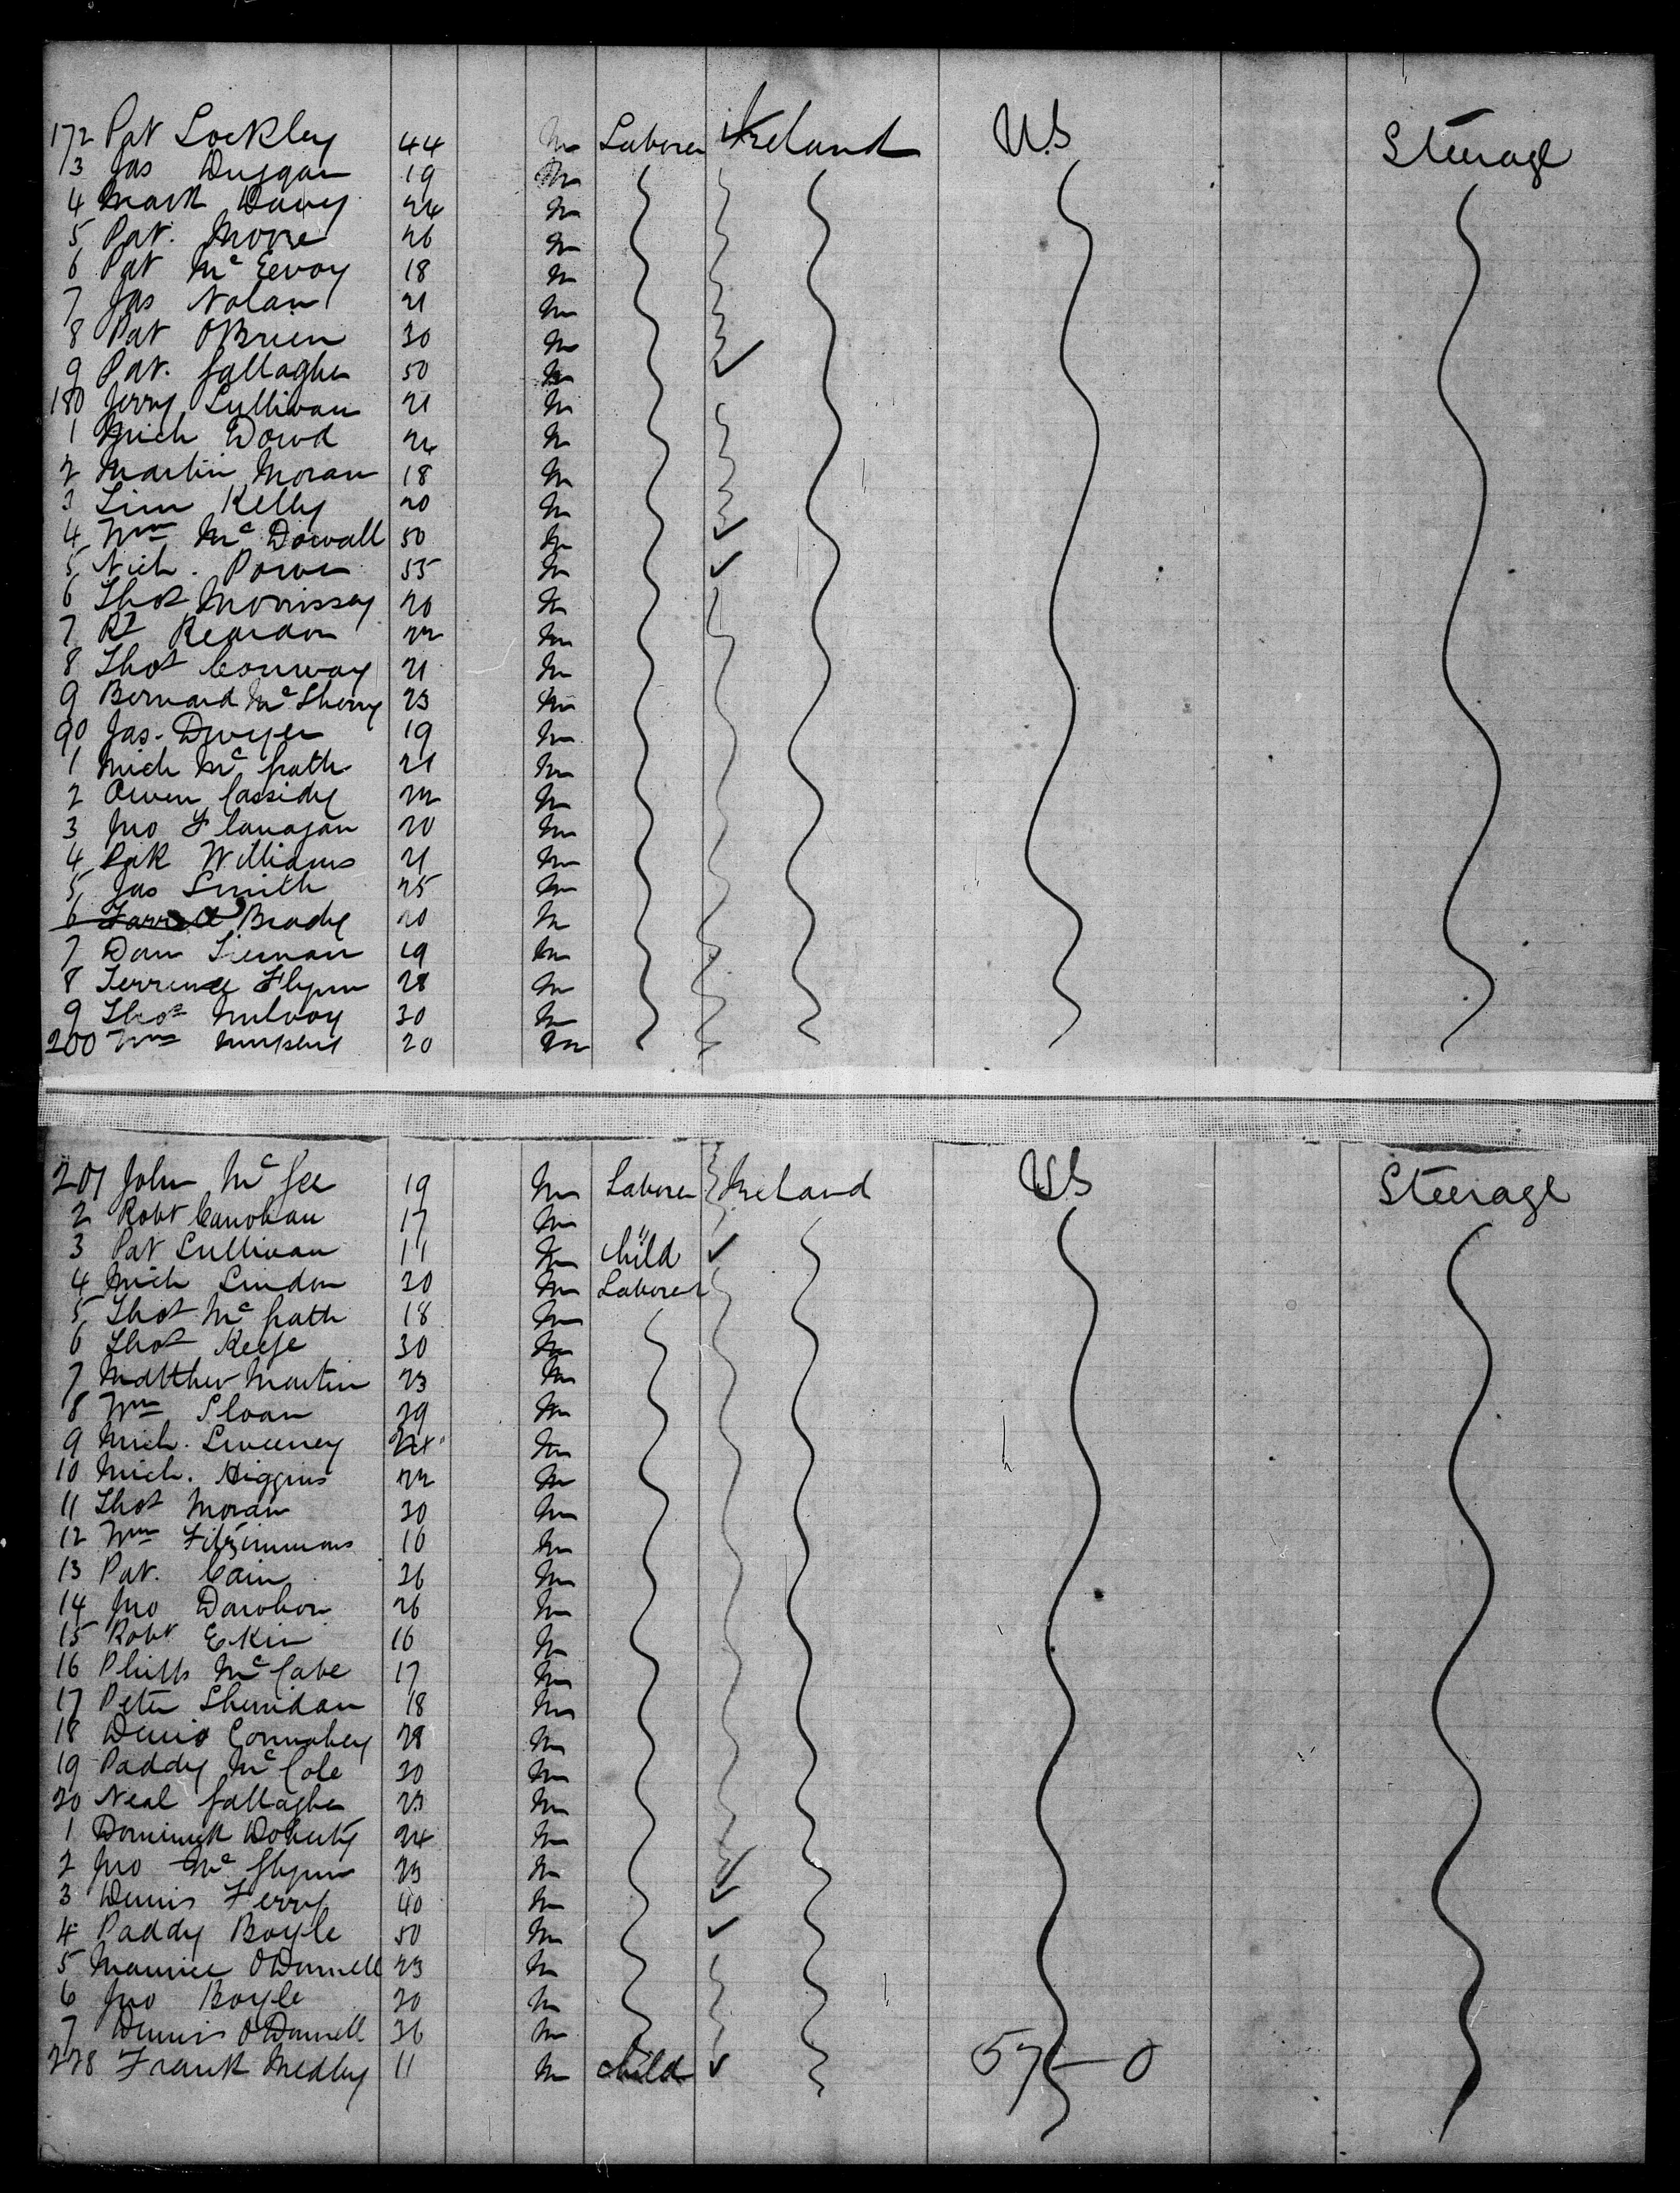 172 Pat Lockley 44 m Laborer Ireland U.S Steerage
3 Jas Duggan 19 m
4 Mark Davy 24 m
5 Pat. Moore 26 m
6 Pat McEevoy 18 m
7 Jas Nolan 21 m
8 Pat O'Brien 30 m
9 Pat. Gallagher 50 m
180 Jerry Sullivan 21 m
1 Mich Dowd 24 m
2 Martin Moran 18 m
3 Tim Kelly 20 m
4 Wm McDowall 50 m
5 Nich. Power 55 m
6 Thos Morrissey 20 m
7 Rd Reardon 22 m
8 Thos Conway 21 m
9 Bernard McSherry 23 m
90 Jas. Dwyer 19 m
1 Mich McGrath 21 m
2 Owen Cassidy 22 m
3 Jno Flanagan 20 m
4 Pat Williams 21 m
5 Jas Smith 25 m
6 Farrell Brady 20 m
7 Dan Tiernan 19 m
8 Terrence Flynn 28 m
9 Thos 30 m
200 Wm 20 m
201 John McGee 19 m Laborer Ireland U.S Steerage
2 Robt 17 m "
3 Pat Sullivan 11 m Child
4 Mich 20 m Laborer
5 Thos McGrath 18 m
6 Thos Keefe 30 m
7 Matthew Martin 23 m
8 Wm Sloan 29 m
9 Mich. Sweeney m
10 Mich. Higgins 22 m
11 Thos Moran 30 m
12 Wm Fitzimmons m
13 Pat. Cain 26 m
14 Jno 26 m
15 Robt Ekin 16 m
16 Philip McCabe 17 m
17 Peter Sheridan 18 m
18 Denis 28 m
19 Paddy McCole 30 m
20 Neal Gallagher 23 m
1 Dominick Doherty 24 m
2 Jno McGlynn 23 m
3 Dennis Ferry 40 m
4 Paddy Boyle 50 m
5 Maurice O'Donnell 23 m
6 Jno Boyle 20 m
7 Dennis O'Donnell 36 m
228 Frank Medley 11 m Child 57 – 0